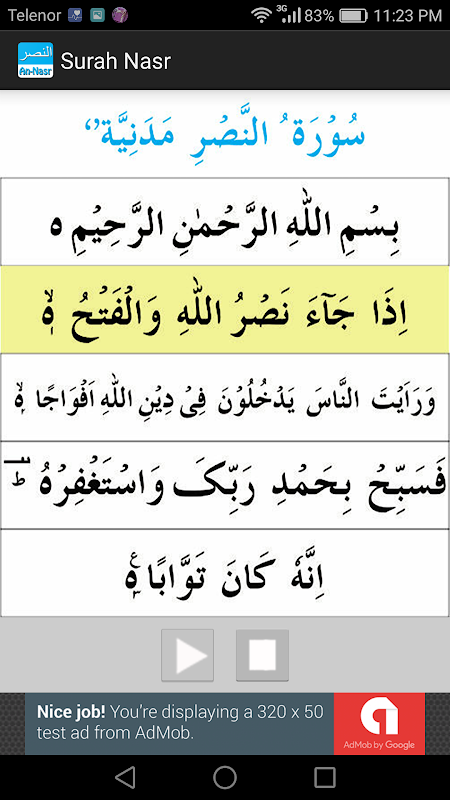 Telenor 3G 83% 11:23 PM
النصر
An-Nasr
Surah Nasr
سُوْرَةُ النَّصْرِ مَدَنِيَّةٌ
بِسْمِ اللّٰهِ الرَّحْمٰنِ الرَّحِيْمِ ہ
اِذَا جَآءَ نَصْرُ اللّٰهِ وَالْفَتْحُ ۙ‏
وَرَاَيْتَ النَّاسَ يَدْخُلُوْنَ فِىْ دِيْنِ اللّٰهِ اَفْوَاجًا ۙ‏
فَسَبِّحْ بِحَمْدِ رَبِّكَ وَاسْتَغْفِرْهُ ؕ
اِنَّهٗ كَانَ تَوَّابًا
Nice job! You're displaying a 320 x 50
test ad from AdMob.
AdMob by Google